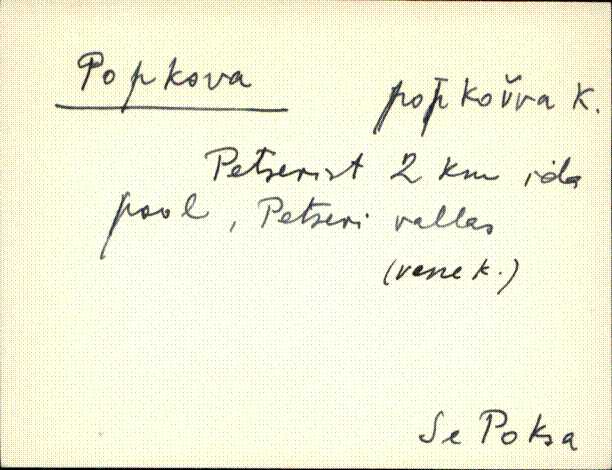 Popkova
popkovva k.
Petserist 2 km ida
pool, Petseri vallas
(vene k.)
Se Poksa